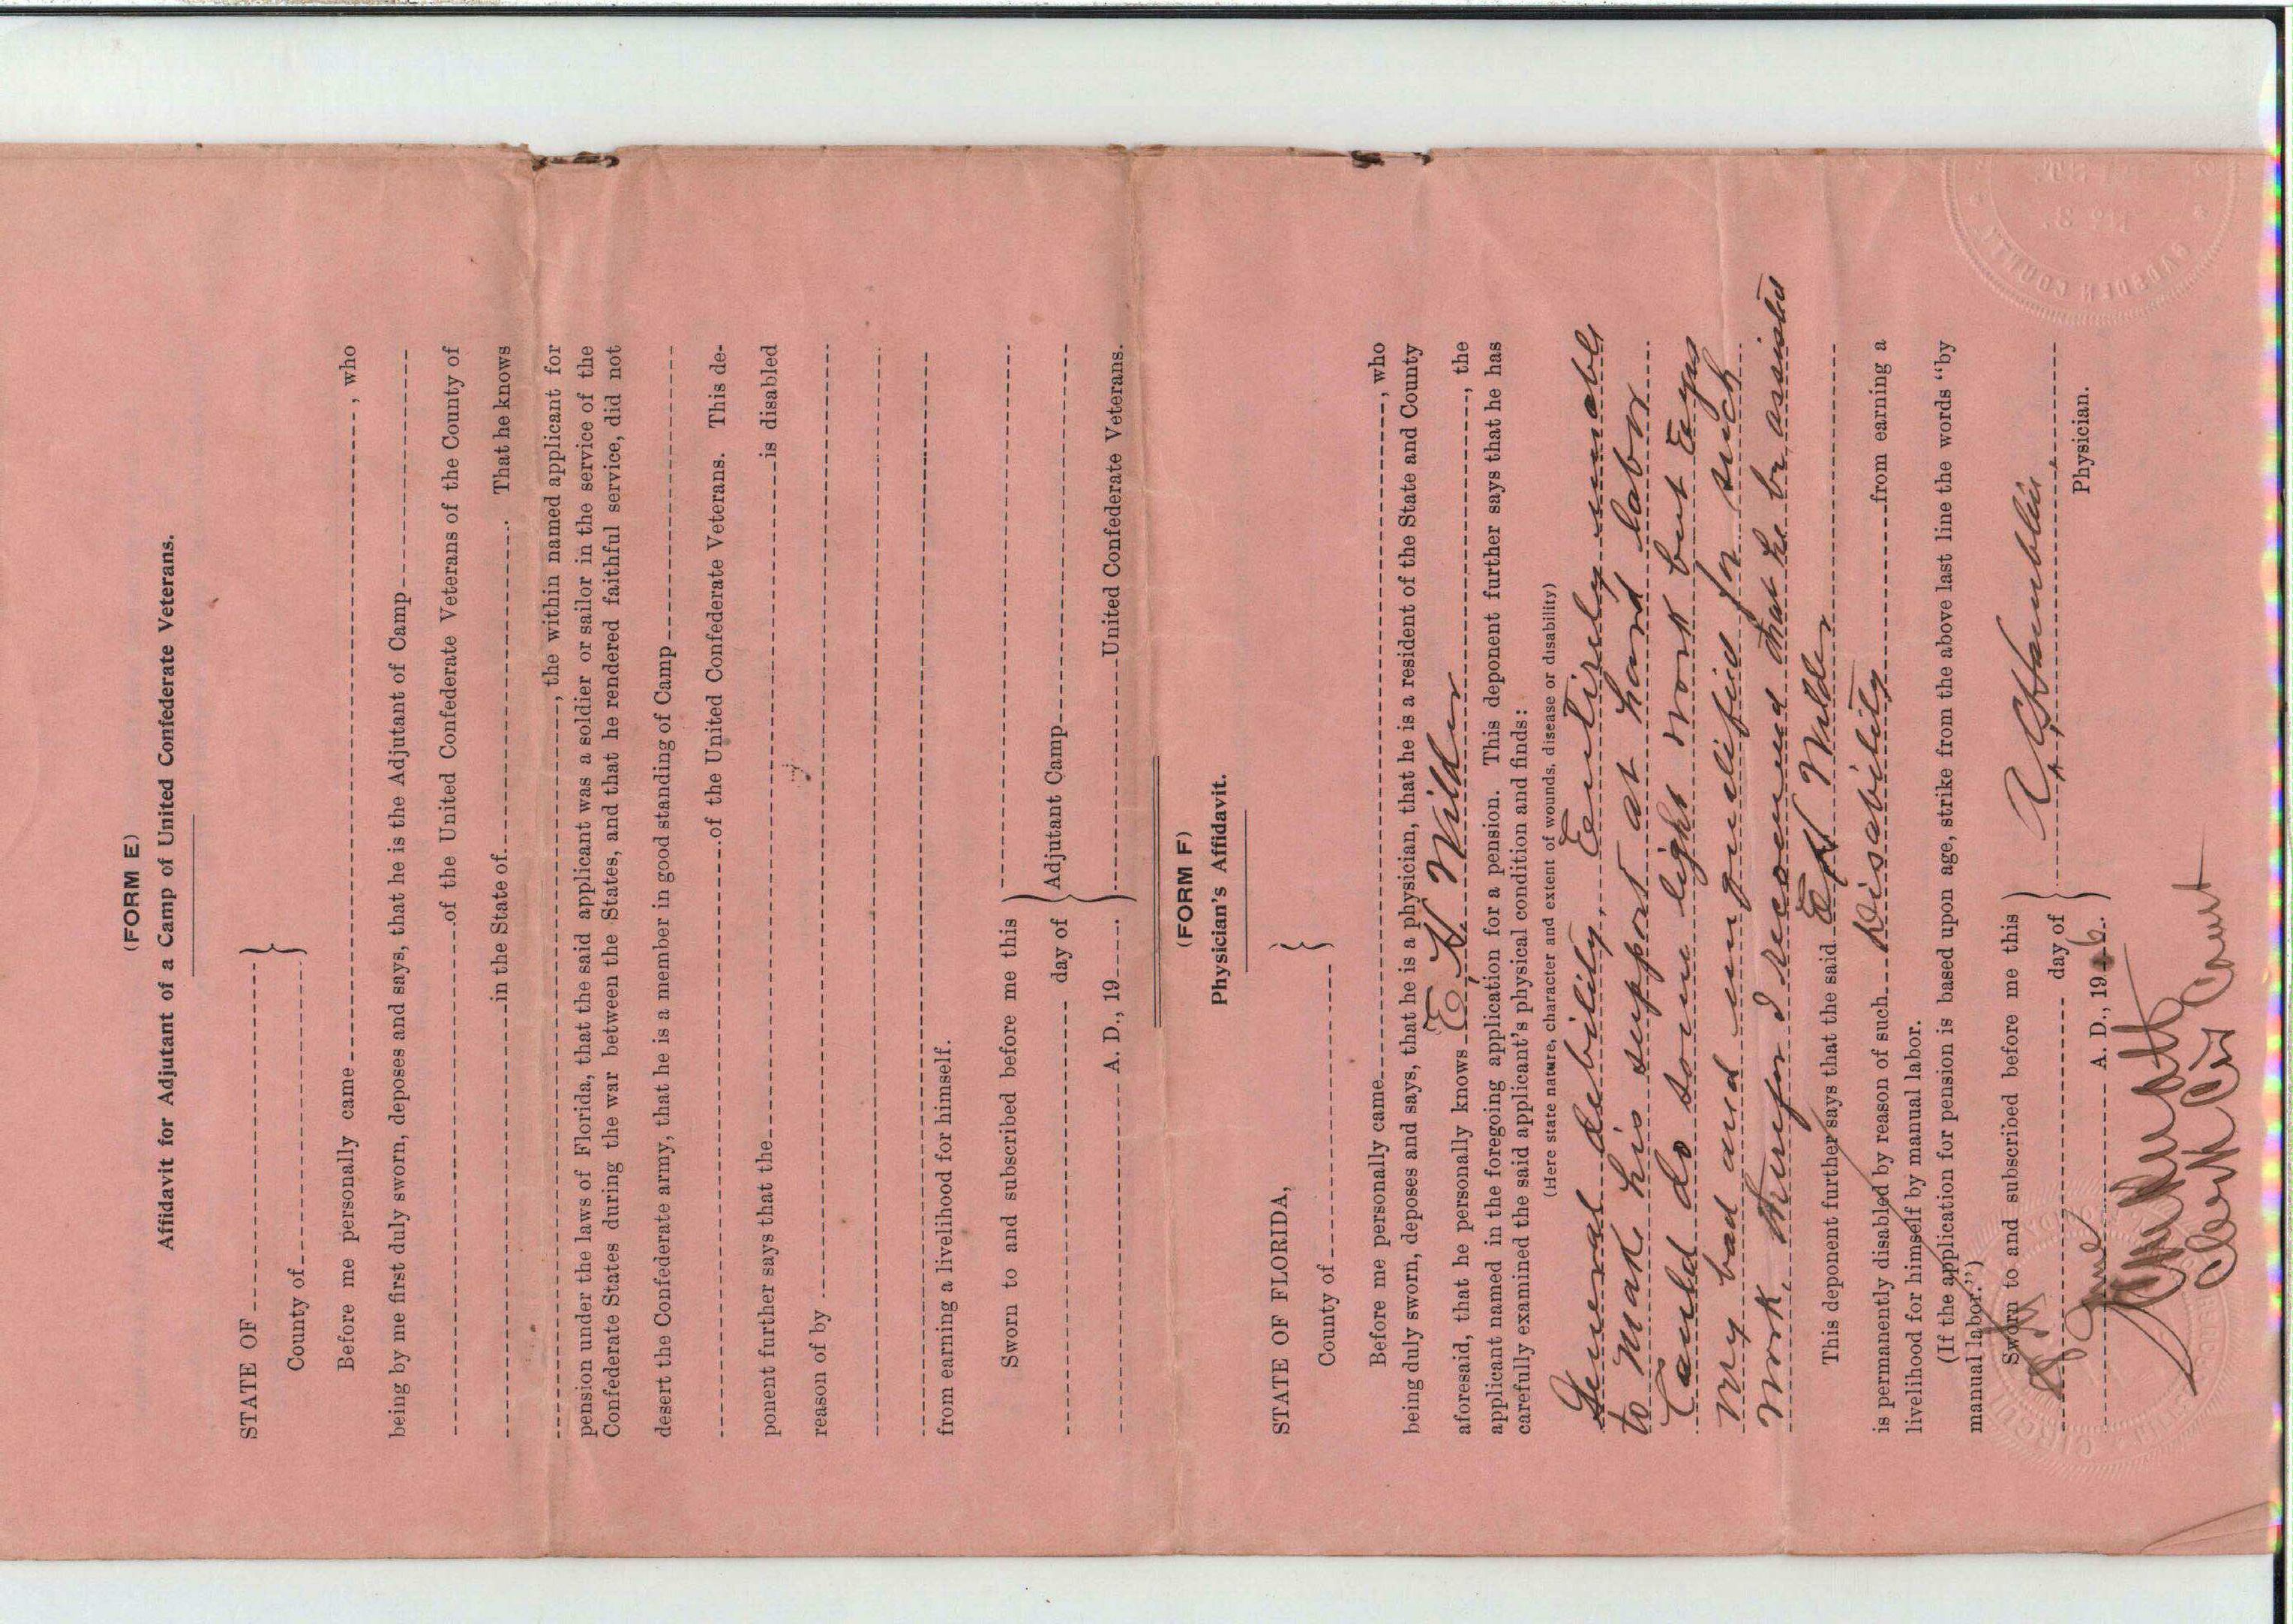 (FORM E)
Affidavit for Adjutant of a Camp of United Confederate Veterans.
STATE OF
County of
Before me personally came , who
being by me first duly sworn, deposes and says, that he is the Adjutant of Camp
of the United Confederate Veterans of the County of
in the State of . That he knows
, the within named applicant for
pension under the laws of Florida, that the said applicant was a soldier or sailor in the service of the
Confederate States during the war between the States, and that he rendered faithful service, did not
desert the Confederate army, that he is a member in good standing of Camp
of the United Confederate Veterans. This de-
ponent further says that the is disabled
reason of by
from earning a livelihood for himself.
Sworn to and subscribed before me this
day of
A. D., 19
Adjutant Camp
United Confederate Veterans.
(FORM F)
Physician's Affidavit.
STATE OF FLORIDA,
County of
Before me personally came , who
being duly sworn, deposes and says, that he is a physician, that he is a resident of the State and County
aforesaid, that he personally knows E. H. Wilder , the
applicant named in the foregoing application for a pension. This deponent further says that he has
carefully examined the said applicant's physical condition and finds:
(Here state nature, character and extent of wounds, disease or disability)
General debility, Entirely unable
to Make his support at hard labor
Could do some light work but Eyes
very bad and unqualified for such
work. Therefor I recommend that he be assisted
This deponent further says that the said E H Wilder
is permanently disabled by reason of such Disability from earning a
livelihood for himself by manual labor.
(If the application for pension is based upon age, strike from the above last line the words "by
manual labor.")
Sworn to and subscribed before me this
day of
June A. D., 19 6.
Physician.
Clerk Cir Court
GADSDEN COUNTY